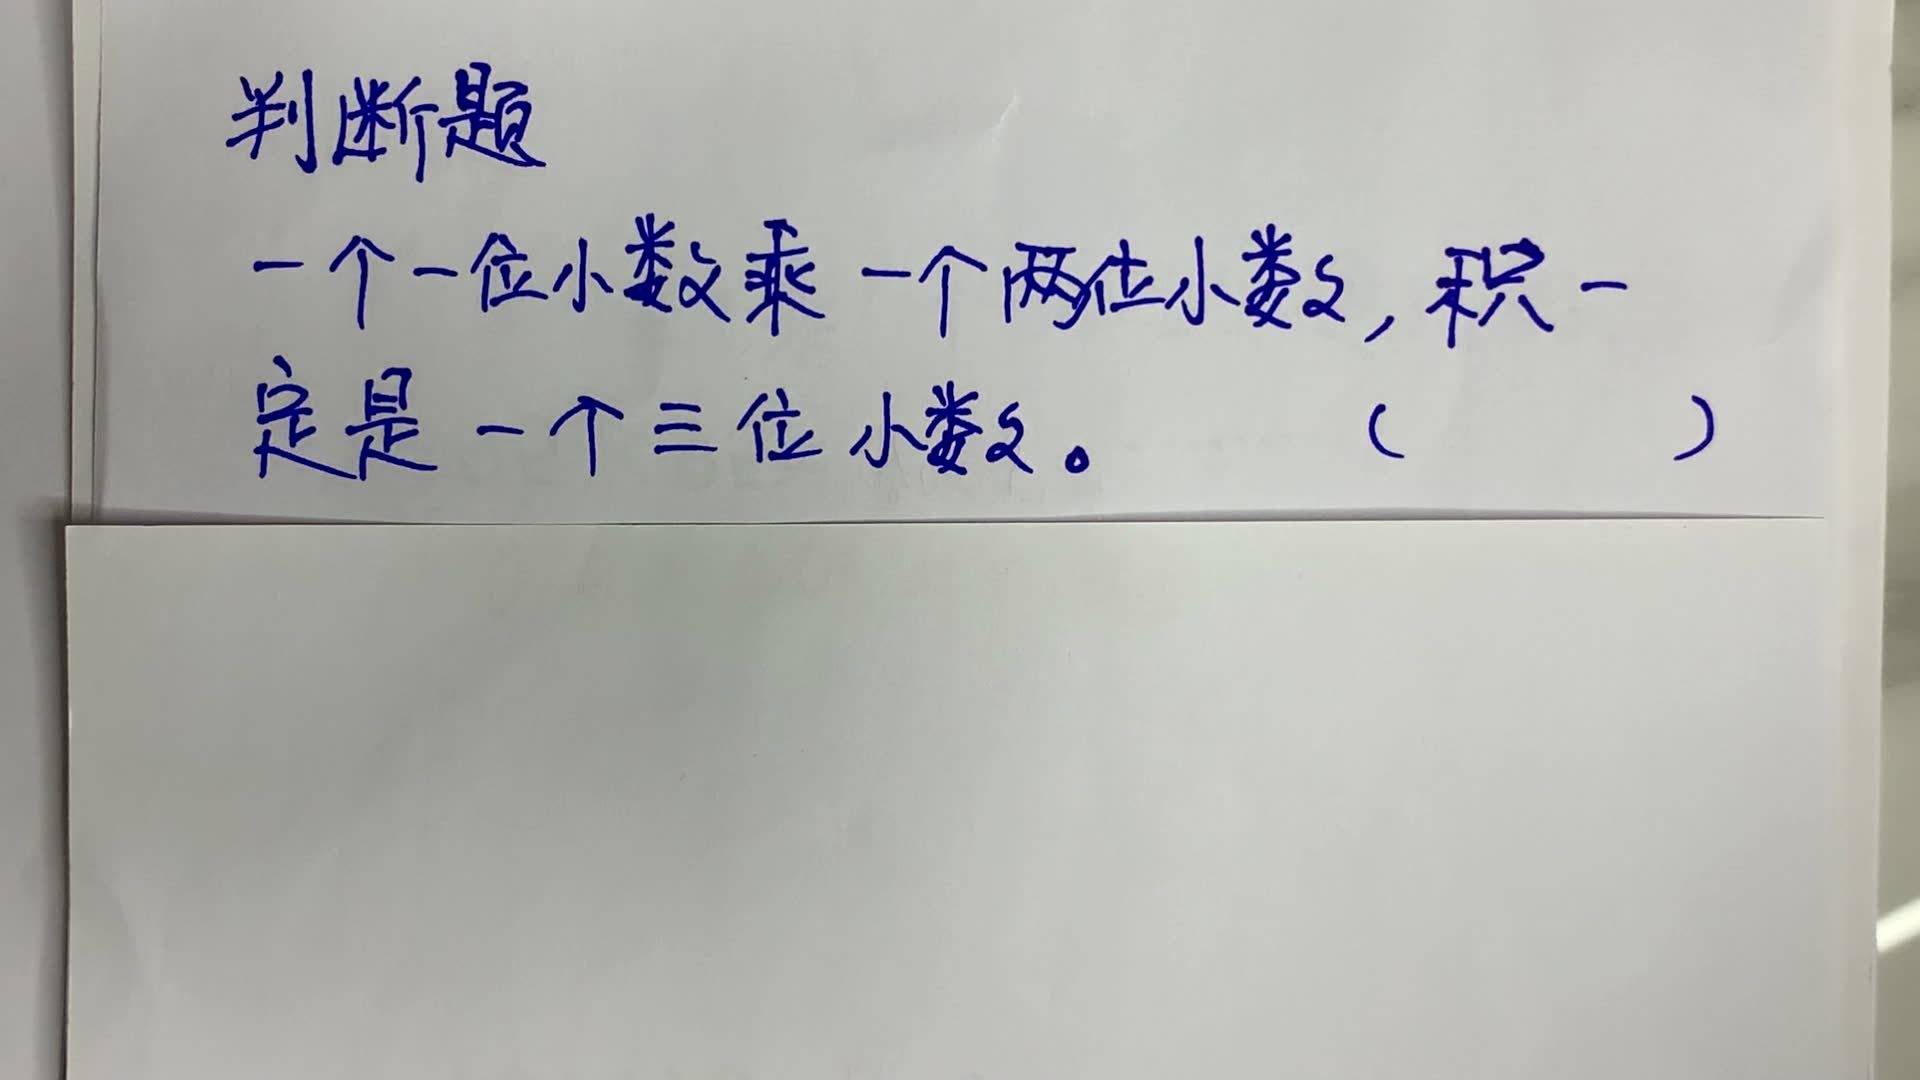 判断题
一个一位小数乘一个两位小数,积一
定是一个三位小数。 ( )